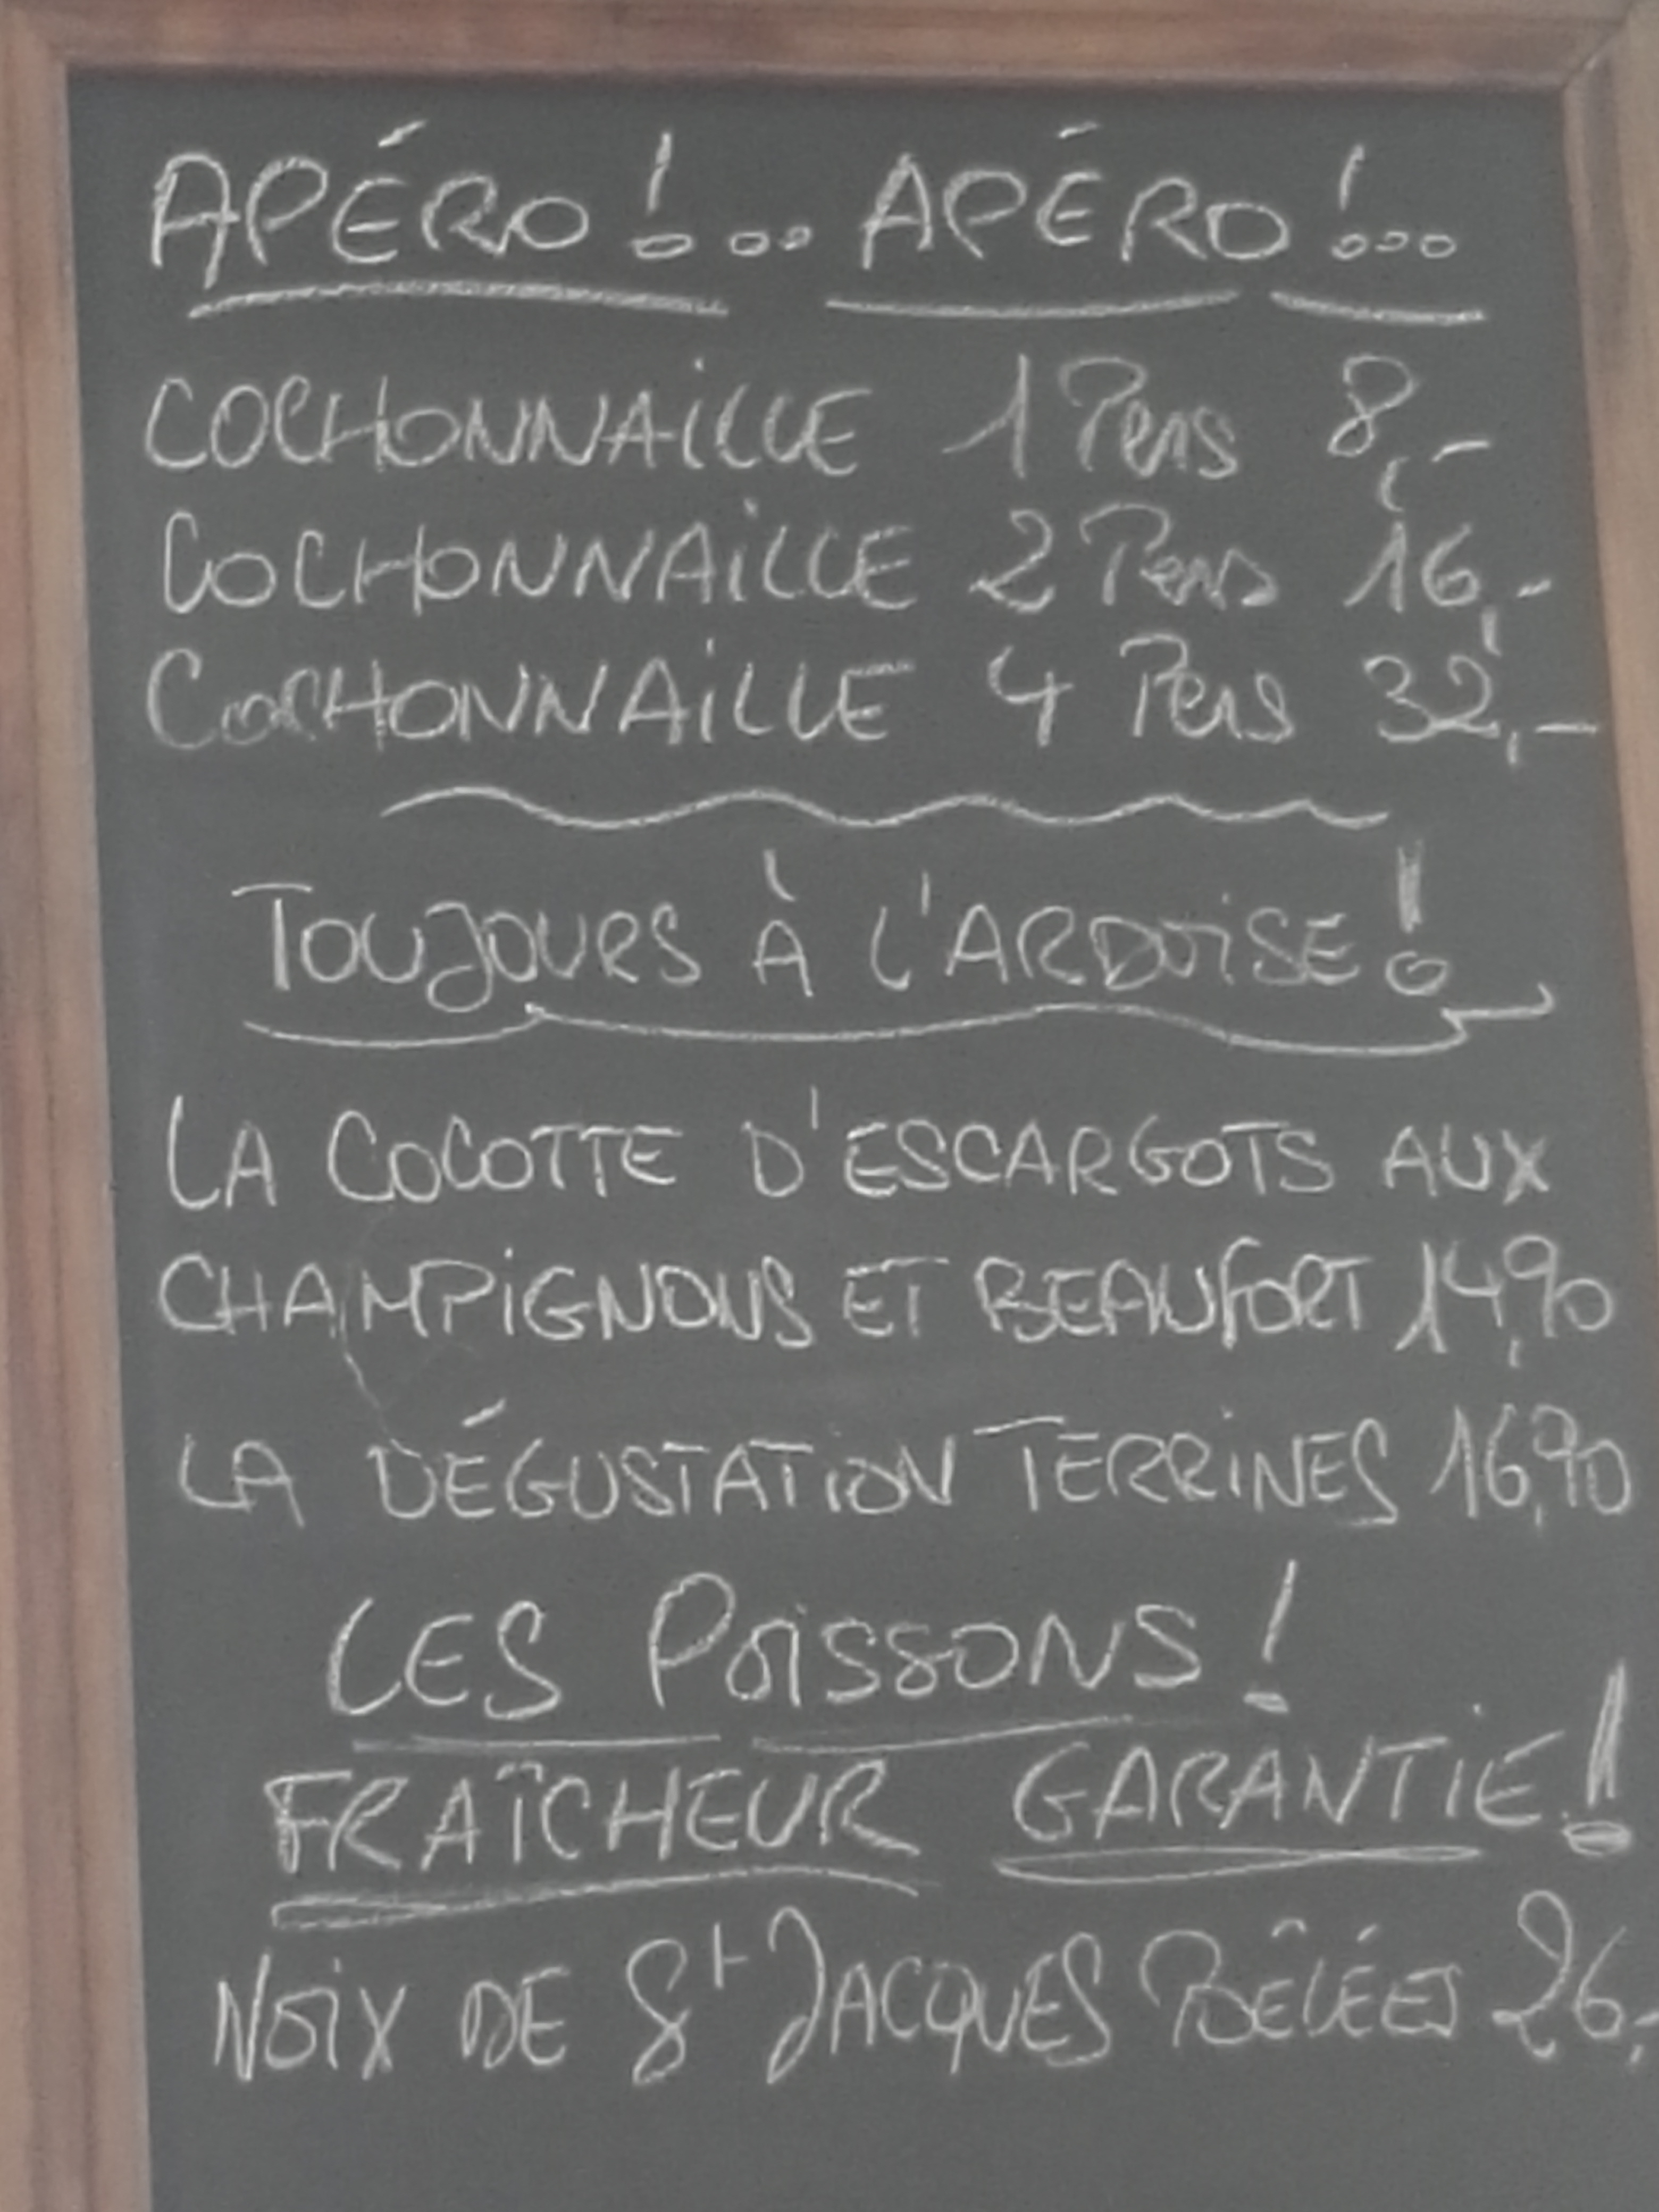 APÉRO !... APÉRO !...
COCHONNAILLE 1 Pers 8,-
COCHONNAILLE 2 Pers 16,-
COCHONNAILLE 4 Pers 32,-
TOUJOURS À L'ARDOISE !
LA COCOTTE D'ESCARGOTS AUX
CHAMPIGNONS ET BEAUFORT 14,90
LA DÉGUSTATION TERRINES 16,90
LES POISSONS !
FRAÎCHEUR GARANTIE !
NOIX DE St JACQUES POÊLÉES 26,-